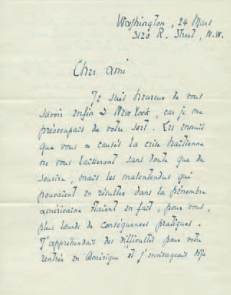 Washington, 24 Mars
3120 R. Street, N.W.
Cher ami
Je suis heureux de vous
savoir enfin à New York, car je me
préoccupais de votre sort. Les ennuis
que vous a causés la crise haïtienne
ne vous laisseront sans doute que du
sourire, mais les malentendus qui
pouvaient en résulter dans la pénombre
américaine étaient en fait, pour vous,
plus lourds de conséquences pratiques.
J'appréhendais des difficultés pour votre
rentrée en Amérique et j'envisageais